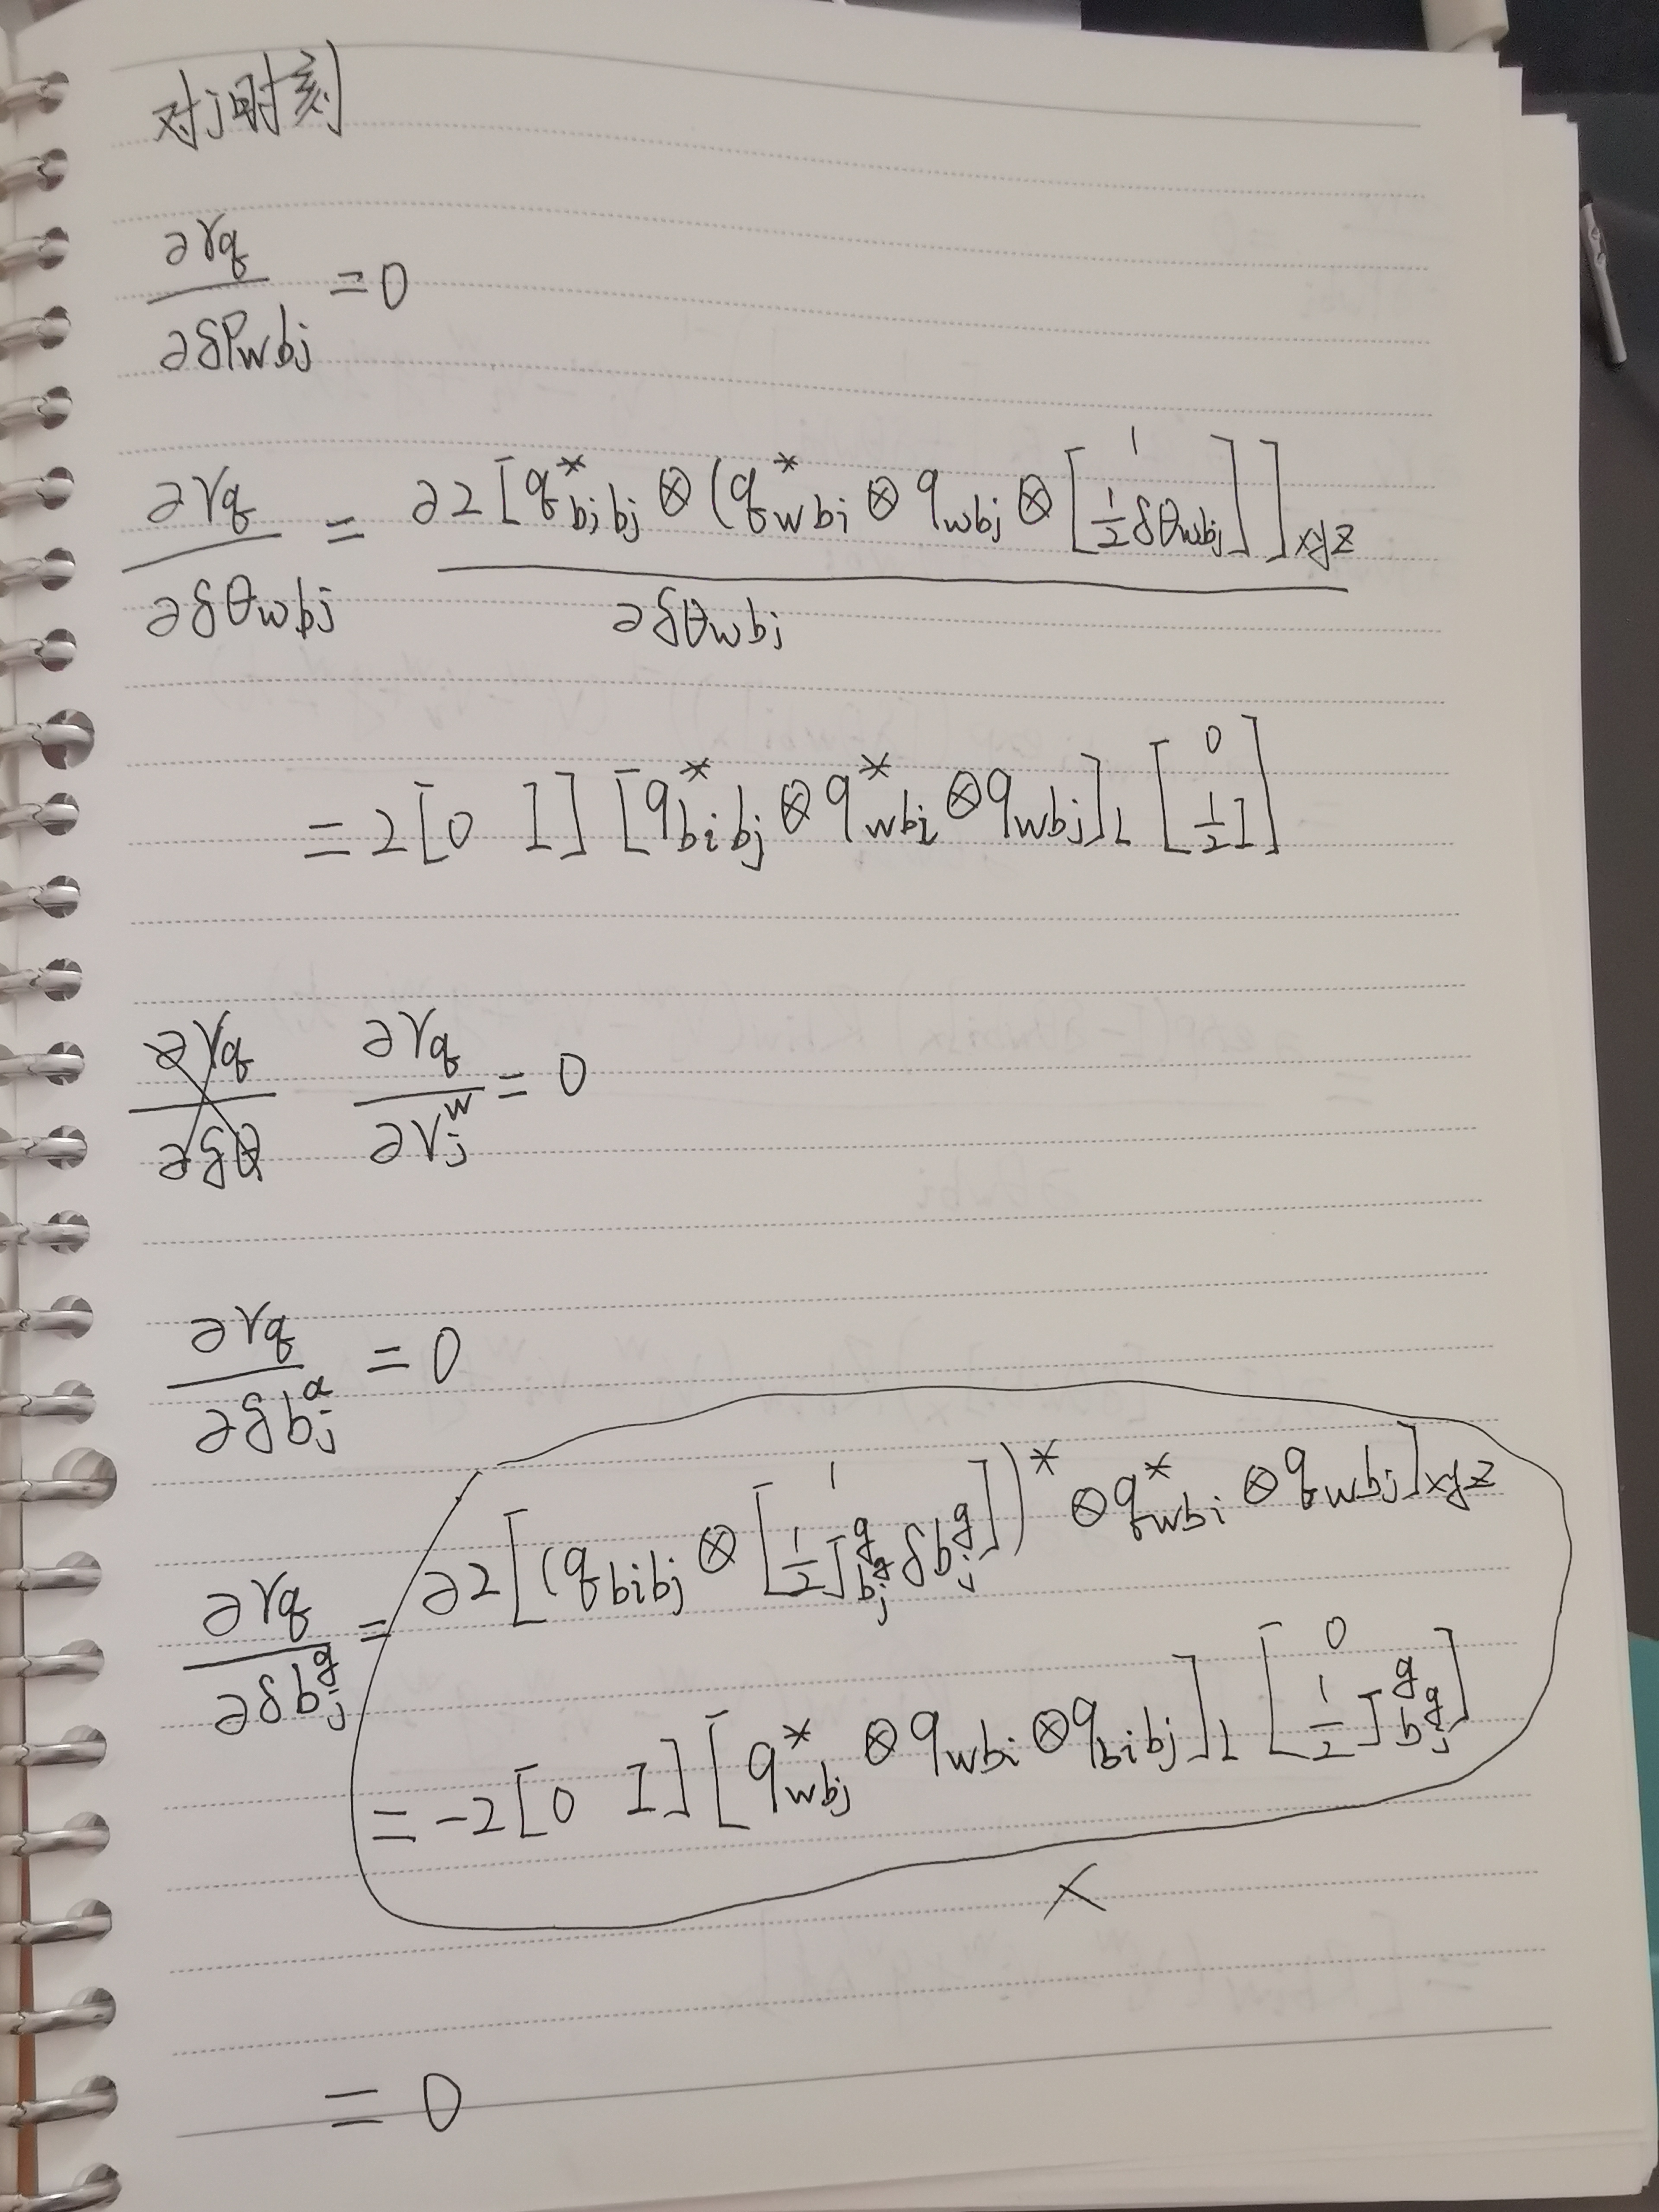 对j时刻
∂r_q / ∂δP_{wbj} = 0
∂r_q / ∂δθ_{wbj} = ∂2[q^*_{bibj} ⊗ (q^*_{wbi} ⊗ q_{wbj} ⊗ [1; 1/2 δθ_{wbj}]]_{xyz} / ∂δθ_{wbj}
= 2[0 I] [q^*_{bibj} ⊗ q^*_{wbi} ⊗ q_{wbj}]_L [0; 1/2 I]
∂r_q / ∂δθ ∂r_q / ∂v_j^w = 0
∂r_q / ∂δb_j^a = 0
∂r_q / ∂δb_j^g = ∂2[(q_{bibj} ⊗ [1; 1/2 J^q_{b_j^g} δb_j^g])^* ⊗ q^*_{wbi} ⊗ q_{wbj}]_{xyz}
= -2[0 I] [q^*_{wbj} ⊗ q_{wbi} ⊗ q_{bibj}]_L [0; 1/2 J^q_{b_j^g}]
×
= 0